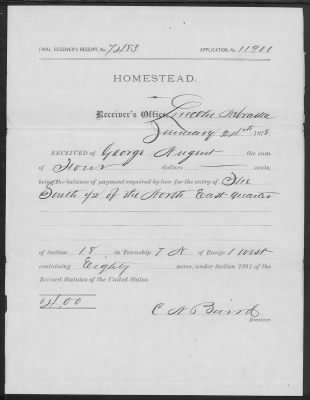 FINAL RECEIVER'S RECEIPT, No. 7483 APPLICATION, No. 11900
HOMESTEAD.
Receiver's Office, Lincoln Nebraska
January 24th 1878
RECEIVED of George August the sum
of Four dollars cents,
being the balance of payment required by law for the entry of The
South 1/2 of the North East quarter
of Section 18 in Township 7 N of Range 1 West
containing Eighty acres, under Section 2291 of the
Revised Statutes of the United States.
$4.00
C N Baird
Receiver.